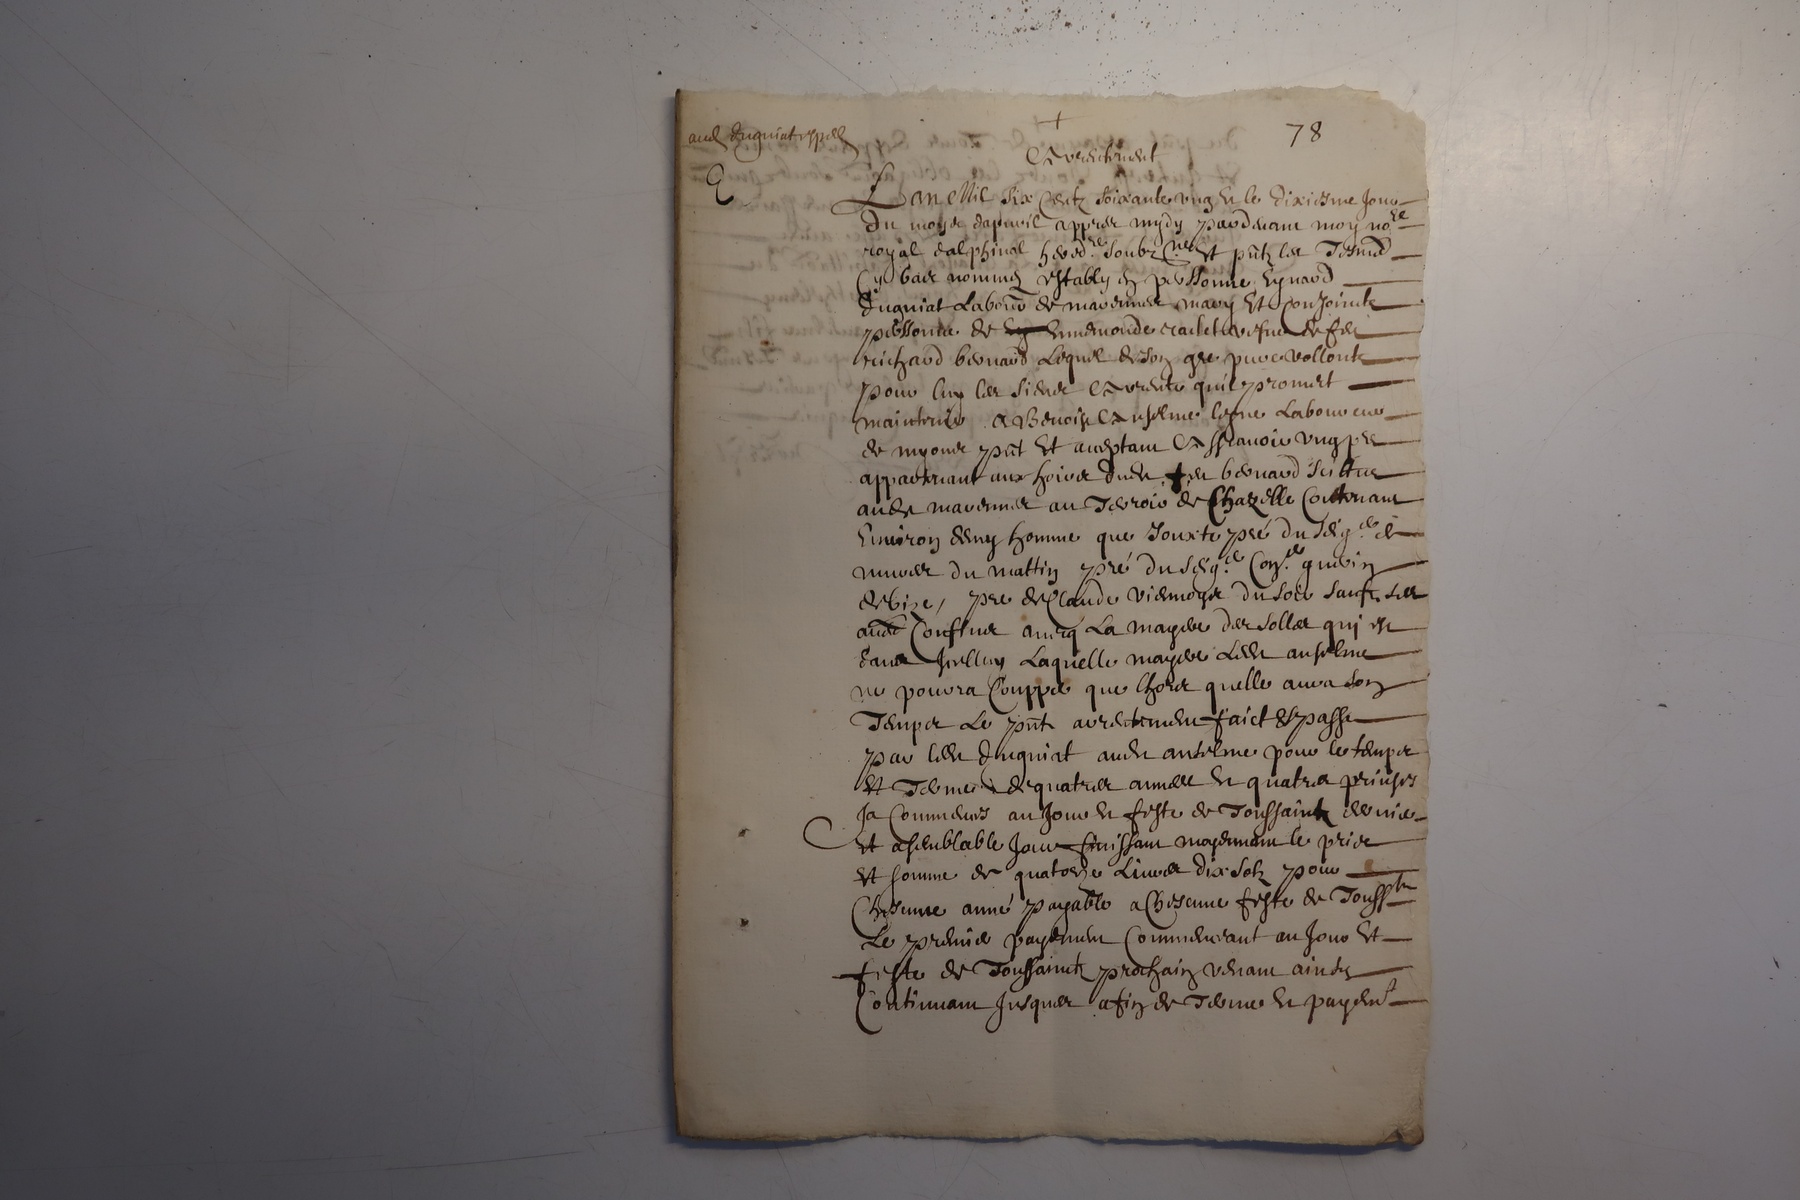 78
Arrentement
Lan Mil Six Centz Soixante ung et le dixiesme Jour
du moys dapvril appres mydy pardevant moy no.re
royal dalphinal hered.re soubz.ne et pntz les Tesm
Cy bas nommes estably en personne Eynard
Duguiat Labour de marennes mary et Conjointe
personne de Ennemonde vefve de feu
richard bernard Lequel de son gre pure vollonte
pour luy les siens Arrente quil promet
maintenir A Benoist Anselme Laboureur
de myons pnt et aceptant Assavoir ung pre
appartenant aux hoirs dudt feu bernard scittue
audt marennes au Terroir de Chazelle Contenant
Environ demy homme que Jouxte pré du seig.r de
du mattin pré du seig.r Con.er guerin
de bize, pre de Claude du soir sauf ses
aues Confins avecq La mayere des solles qui est
dans Jcelluy Laquelle mayere Ledt anselme
ne pourra Coupper que lhors quelle aura son
Temps Le pnt arrentement faict et passe
par ledt Duguiat audt anselme pour le temps
et Terme de quatres annees et quatres prinses
Ja Commences au Jour et feste de Toussaintz dernier
et a semblable Jour finissant moyennant le pris
et somme de quatorze Livres dix solz pour
Chescune anné payable a Chescune feste de Touss.tz
Le premier payement Commencant au Jour et
feste de Toussaintz prochain venant ainsy
Continuant Jusques a fin de Terme et payem.t